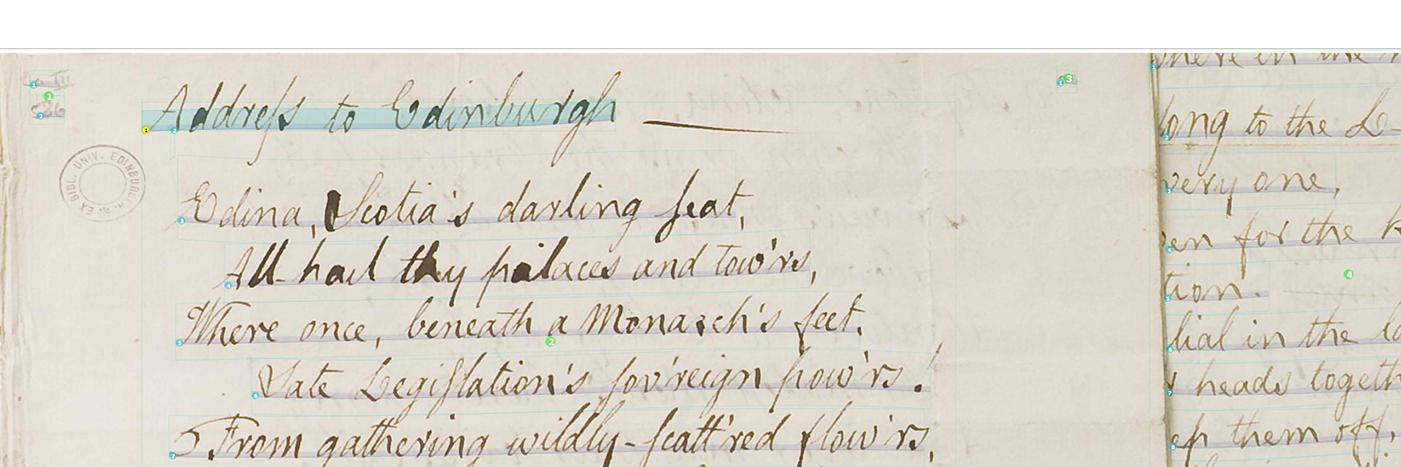 Addreſs to Edinburgh
BIBL. UNIV. EDINBURGEN
Edina, Scotia's darling ſeat,
All hail thy palaces and tow'rs,
Where once, beneath a Monarch's feet,
Sate Legiſlation's ſov'reign pow'rs!
5 From gathering wildly-ſcatt'red flow'rs,
where in the
long to the L-
very one,
for the
tion.
lial in the
heads togeth
ep them off,